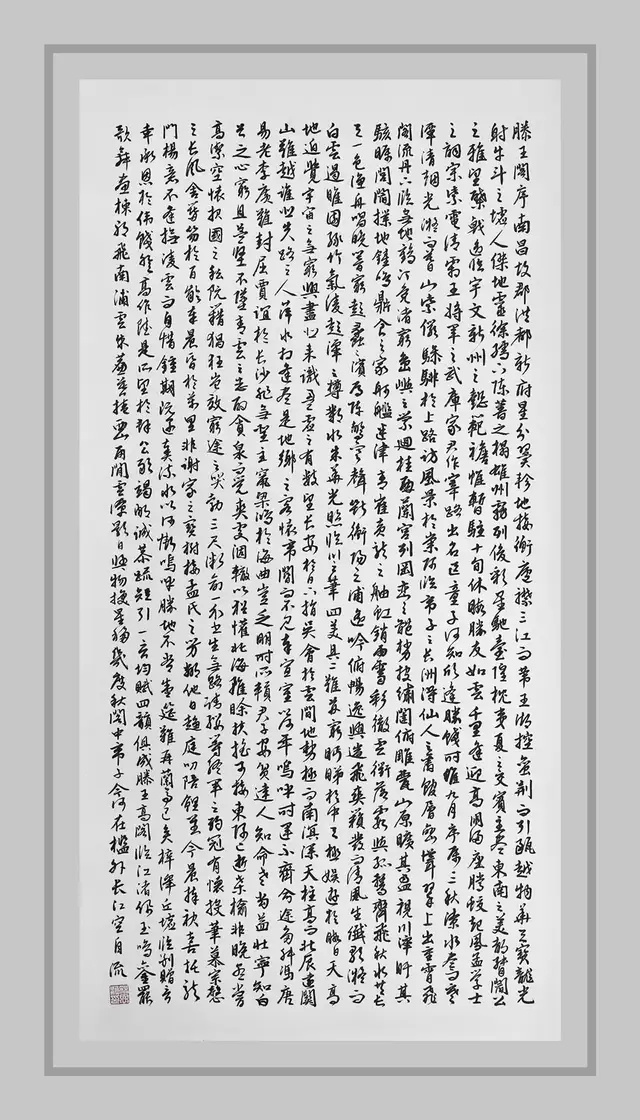 滕王閣序南昌故郡洪都新府星分翼軫地接衡廬襟三江而帶五湖控蠻荊而引甌越物華天寶龍光
射牛斗之墟人傑地靈徐孺下陳蕃之榻雄州霧列俊彩星馳臺隍枕夷夏之交賓主盡東南之美都督閻公
之雅望棨戟遙臨宇文新州之懿範襜帷暫駐十旬休暇勝友如雲千里逢迎高朋滿座騰蛟起鳳孟學士
之詞宗紫電清霜王將軍之武庫家君作宰路出名區童子何知躬逢勝餞時維九月序屬三秋潦水盡而寒
潭清煙光凝而暮山紫儼驂騑於上路訪風景於崇阿臨帝子之長洲得仙人之舊館層巒聳翠上出重霄飛
閣流丹下臨無地鶴汀鳧渚窮島嶼之縈迴桂殿蘭宮列岡巒之體勢披繡闥俯雕甍山原曠其盈視川澤盱其
駭矚閭閻撲地鐘鳴鼎食之家舸艦迷津青雀黃龍之舳虹銷雨霽彩徹雲衢落霞與孤鶩齊飛秋水共長
天一色漁舟唱晚響窮彭蠡之濱雁陣驚寒聲斷衡陽之浦遙吟俯暢逸興遄飛爽籟發而清風生纖歌凝而
白雲遏睢園綠竹氣凌彭澤之樽鄴水朱華光照臨川之筆四美具二難並窮睇眄於中天極娛遊於暇日天高
地迥覺宇宙之無窮興盡悲來識盈虛之有數望長安於日下指吳會於雲間地勢極而南溟深天柱高而北辰遠關
山難越誰悲失路之人萍水相逢盡是他鄉之客懷帝閽而不見奉宣室以何年嗚呼時運不齊命途多舛馮唐
易老李廣難封屈賈誼於長沙非無聖主竄梁鴻於海曲豈乏明時所賴君子安貧達人知命老當益壯寧知白
首之心窮且益堅不墜青雲之志酌貪泉而覺爽處涸轍以猶懽北海雖賒扶搖可接東隅已逝桑榆非晚孟嘗
高潔空懷報國之阮籍猖狂豈效窮途之哭勃三尺微命一介書生無路請纓等終軍之弱冠有懷投筆慕宗愨
之長風舍簪笏於百齡奉晨昏於萬里非謝家之寶樹接孟氏之芳鄰他日趨庭叨陪鯉對今晨捧袂喜托龍
門楊意不逢撫凌雲而自惜鍾期既遇奏流水以何慚嗚呼勝地不常盛筵難再蘭亭已矣梓澤丘墟臨別贈言
幸承恩於偉餞登高作賦是所望於群公敢竭鄙誠恭疏短引一言均賦四韻俱成滕王高閣臨江渚佩玉鳴鑾罷
歌舞畫棟朝飛南浦雲朱簾暮捲雨閒雲潭影日悠物換星移幾度秋閣中帝子今何在檻外長江空自流